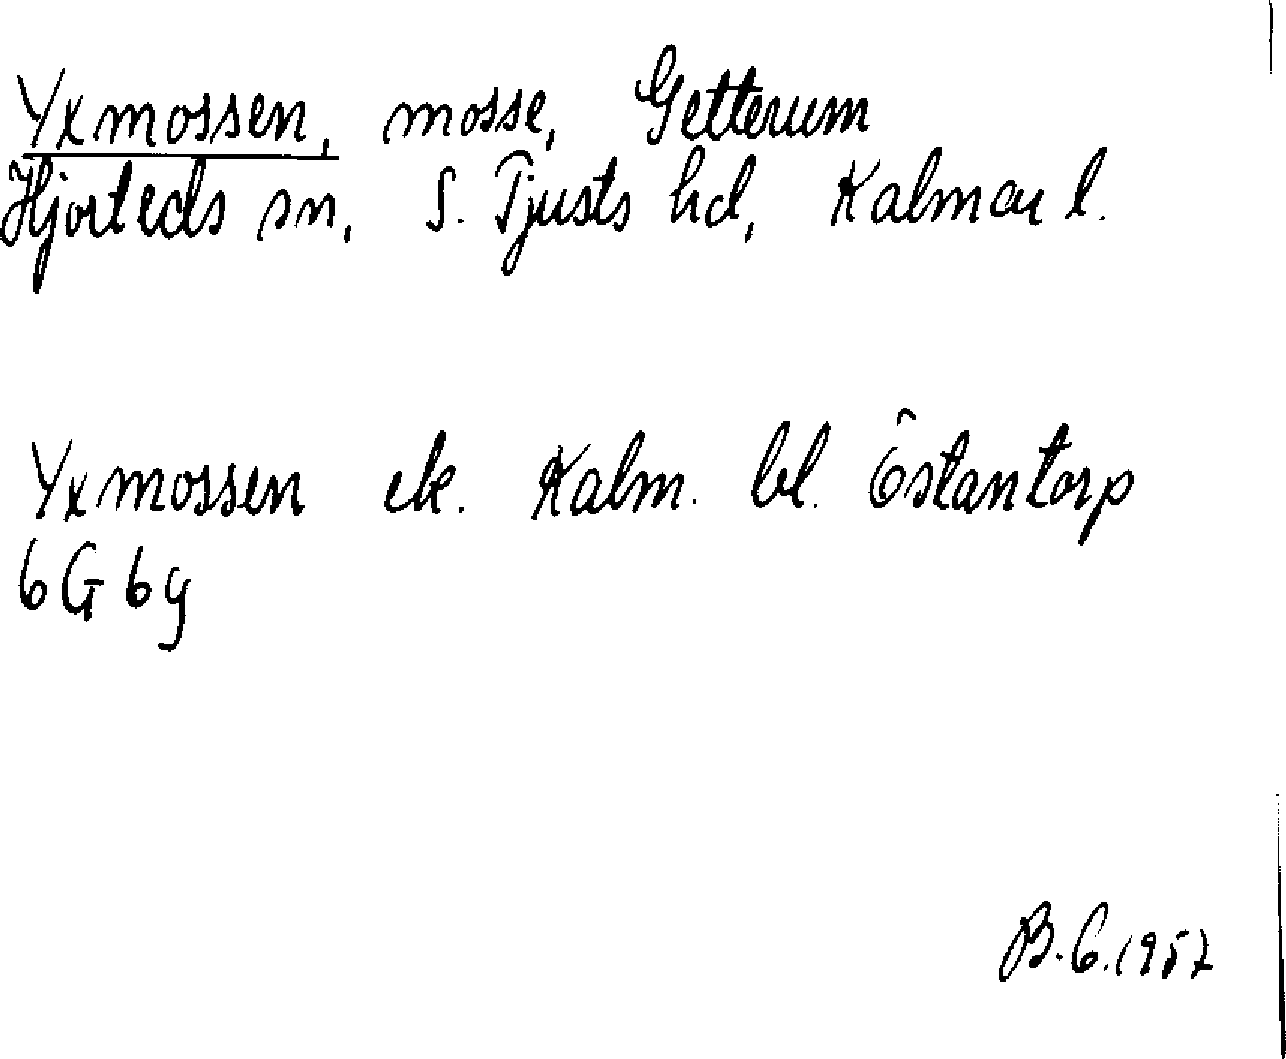 Yxmossen, mosse, Getterum
Hjorteds sn, S. Tjusts hd, Kalmar l.
Yxmossen ek. Kalm. bl. Östantorp
6G 6g
B.G.1957